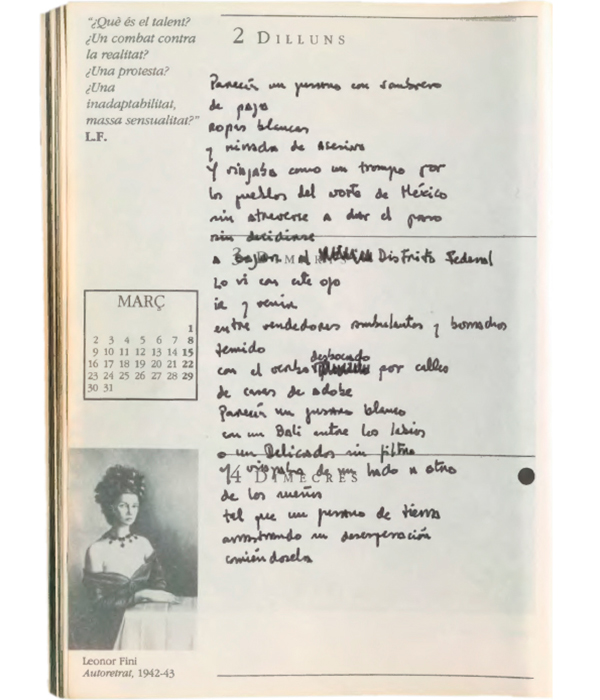 "¿Què és el talent?
¿Un combat contra
la realitat?
¿Una protesta?
¿Una
inadaptabilitat,
massa sensualitat?"
L.F.
2 DILLUNS
Parecía un gusano con sombrero
de paja
ropas blancas
y mirada de asesino
Y viajaba como un trompo por
los pueblos del norte de México
sin atreverse a dar el paso
sin decidirse
3 DIMARTS
a bajar al Distrito Federal
Lo vi con este ojo
ir y venir
entre vendedores ambulantes y borrachos
temido
con el verbo desbocado por calles
de casas de adobe
Parecía un gusano blanco
con un Bali entre los labios
o un Delicados sin filtro
4 DIMECRES
Y viajaba de un lado a otro
de los sueños
tal que un gusano de tierra
arrastrando su desesperación
comiéndosela
MARÇ
1
2 3 4 5 6 7 8
9 10 11 12 13 14 15
16 17 18 19 20 21 22
23 24 25 26 27 28 29
30 31
Leonor Fini
Autoretrat, 1942-43